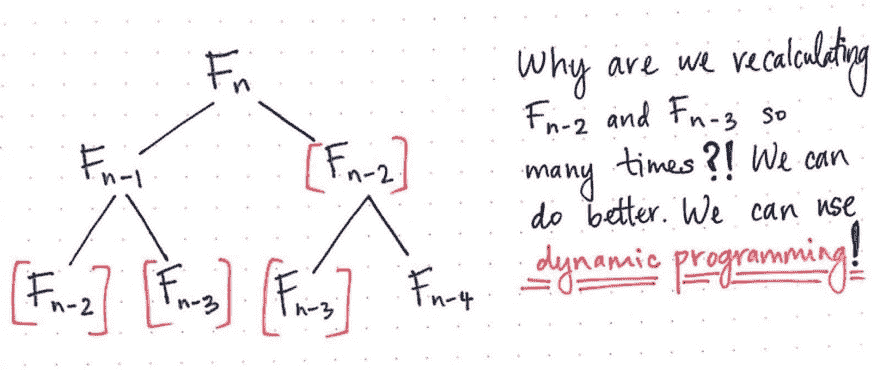 F_n
F_{n-1} [F_{n-2}]
[F_{n-2}] [F_{n-3}] [F_{n-3}] F_{n-4}
Why are we recalculating
F_{n-2} and F_{n-3} so
many times?! We can
do better. We can use
dynamic programming!